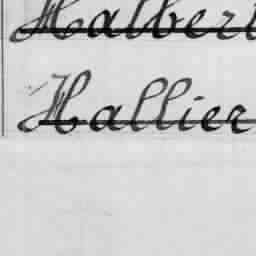 Halbert
Hallier